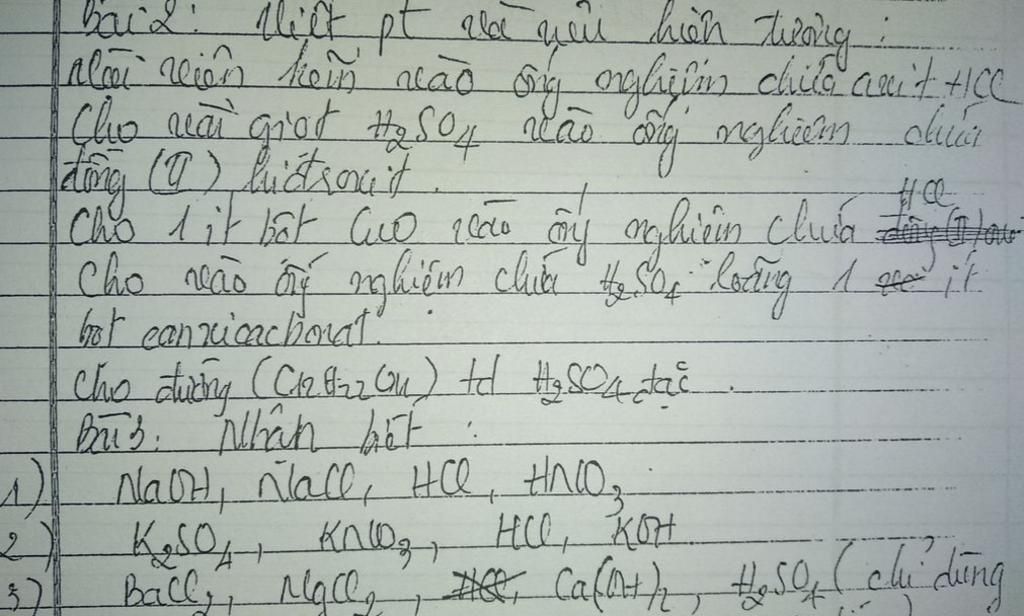 Bài 2: Viết pt và nêu hiện tượng :
Vài viên kẽm vào ống nghiệm chứa axit HCl
Cho vài giọt H₂SO₄ vào ống nghiệm chứa
đồng (II) hiđroxit.
Cho 1 ít bột CuO vào ống nghiệm chứa HCl
Cho vào ống nghiệm chứa H₂SO₄ loãng 1 ít
bột canxicacbonat.
Cho đường (C12H22O11) td H₂SO₄ đặc.
Bài 3: Nhận biết :
1) NaOH, NaCl, HCl, HNO₃
2) K₂SO₄, KNO₃, HCl, KOH
3) BaCl₂, MgCl₂, Ca(OH)₂, H₂SO₄ (chỉ dùng